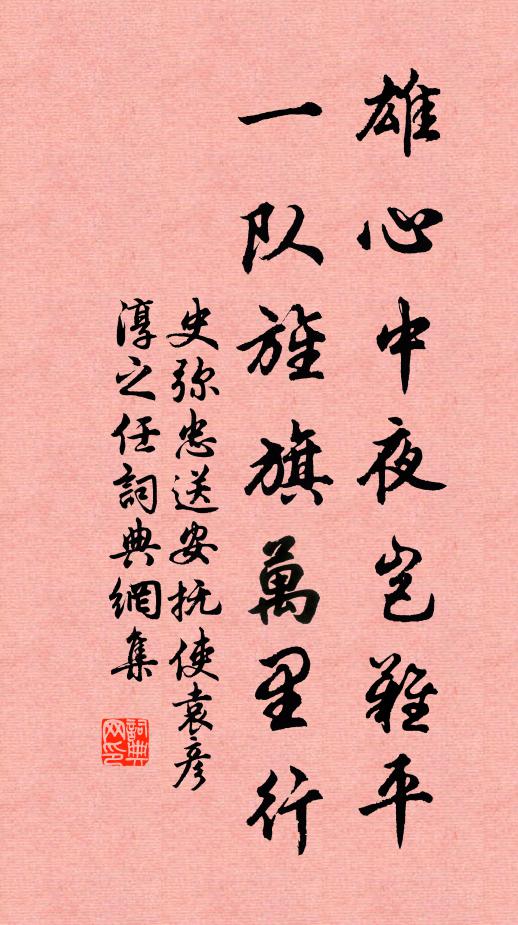 雄心中夜岂难平
一队旌旗萬里行
史弥忠送安抚使袁彦
淳之任詞典網集
詞典網印